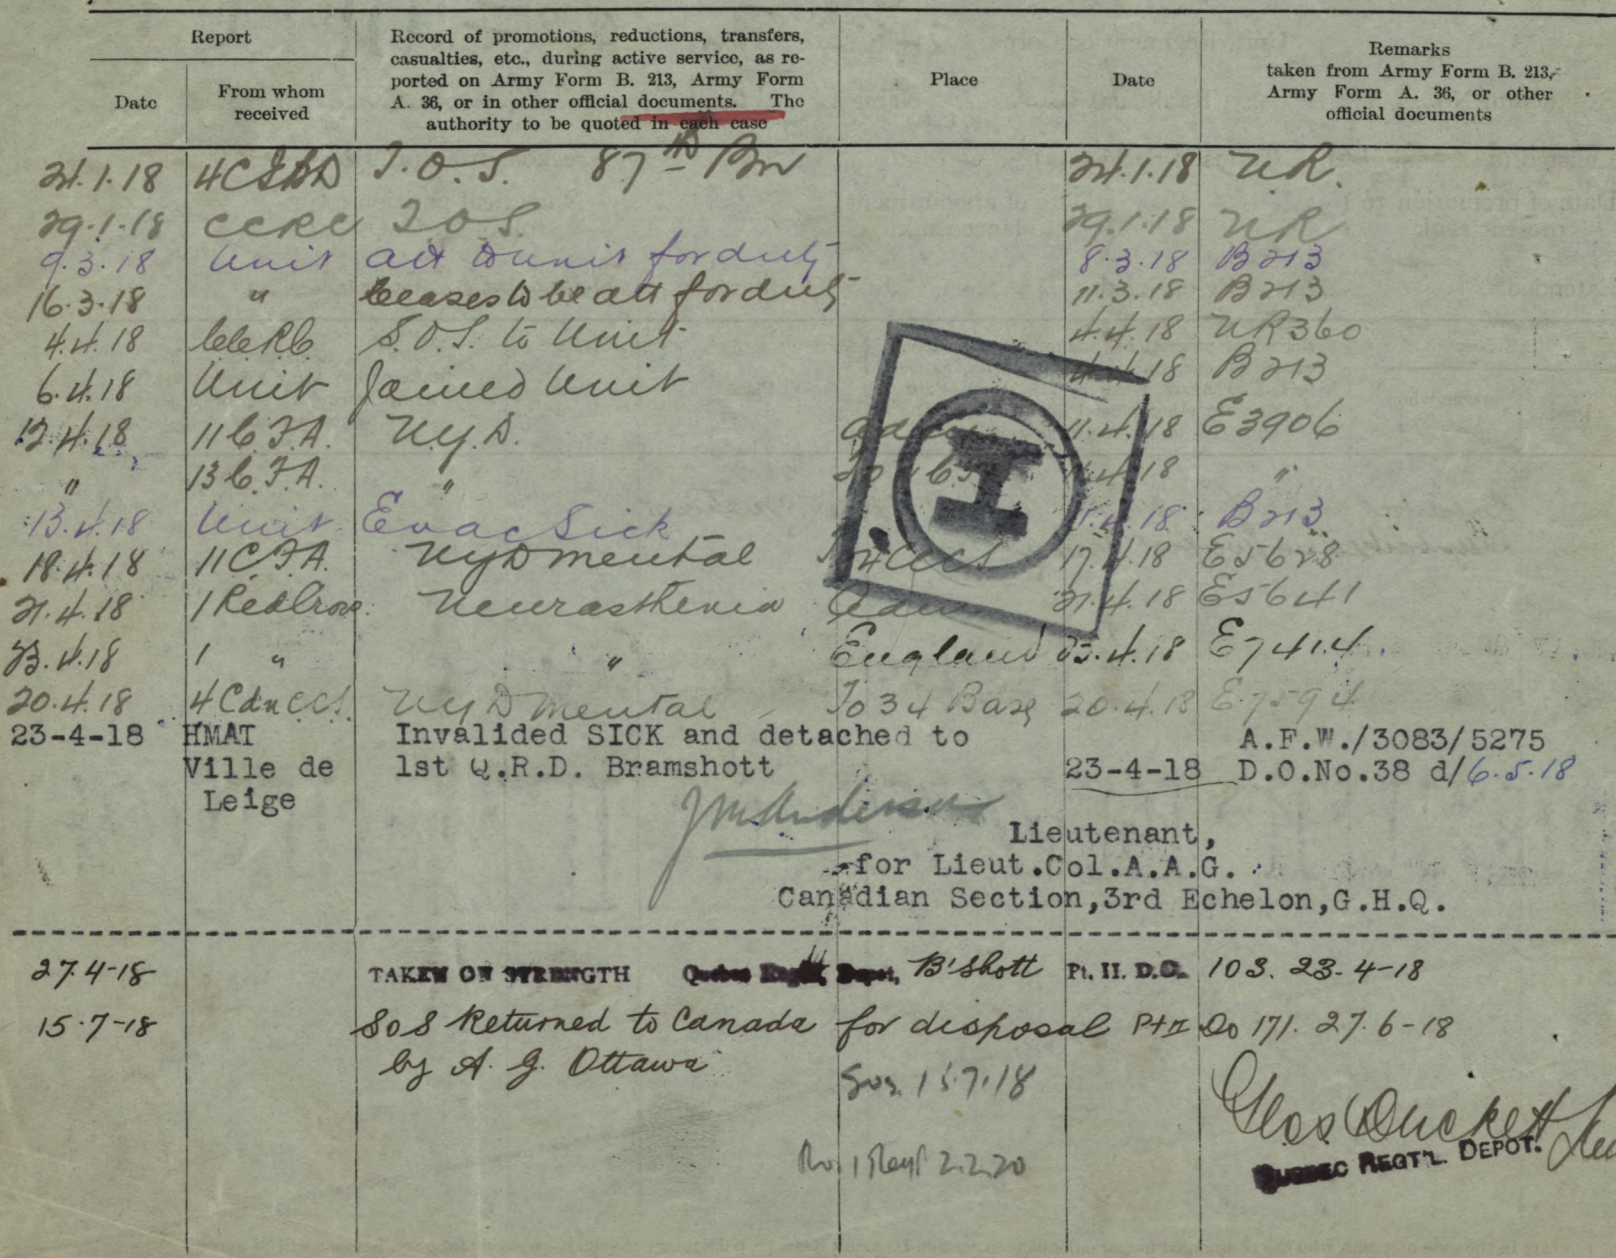 Report
Record of promotions, reductions, transfers,
casualties, etc., during active service, as re-
ported on Army Form B. 213, Army Form
A. 36, or in other official documents. The
authority to be quoted in each case
Place
Date
Remarks
taken from Army Form B. 213,
Army Form A. 36, or other
official documents
Date
From whom
received
24.1.18 T.O.S. 87th Bn 24.1.18 NR.
29.1.18 CCRC TOS 29.1.18 NR
9.3.18 Unit att to unit for duty 8.3.18 B213
16.3.18 " Ceases to be att for duty 11.3.18 B213
4.4.18 CCRC S.O.S. to Unit 4.4.18 NR360
6.4.18 Unit Joined Unit 4.4.18 B213
12.4.18 11 C.F.A. N.Y.D. 11.4.18 E3906
" 13 C.F.A. " 4.18 "
13.4.18 Unit Evac Sick 4.18 B213
18.4.18 11 C.F.A. NYD mental 17.4.18 E5628
21.4.18 1 Red Cross Neurasthenia 21.4.18 E5641
23.4.18 1 " " England 23.4.18 E7414
20.4.18 4 Cdn CCS. NYD mental To 34 Base 20.4.18 E7594
I
23-4-18 HMAT Invalided SICK and detached to A.F.W./3083/5275
Ville de 1st Q.R.D. Bramshott 23-4-18 D.O.No.38 d/6.5.18
Leige
Lieutenant,
for Lieut.Col.A.A.G.
Canadian Section,3rd Echelon,G.H.Q.
27.4-18 TAKEN ON STRENGTH Quebec Depot, B'Shott Pt. II. D.O. 103. 23-4-18
15-7-18 SOS Returned to Canada for disposal Pt II Do 171. 27.6-18
by A. G. Ottawa
Sos. 15.7.18
2.2.20
QUEBEC REGT'L DEPOT.